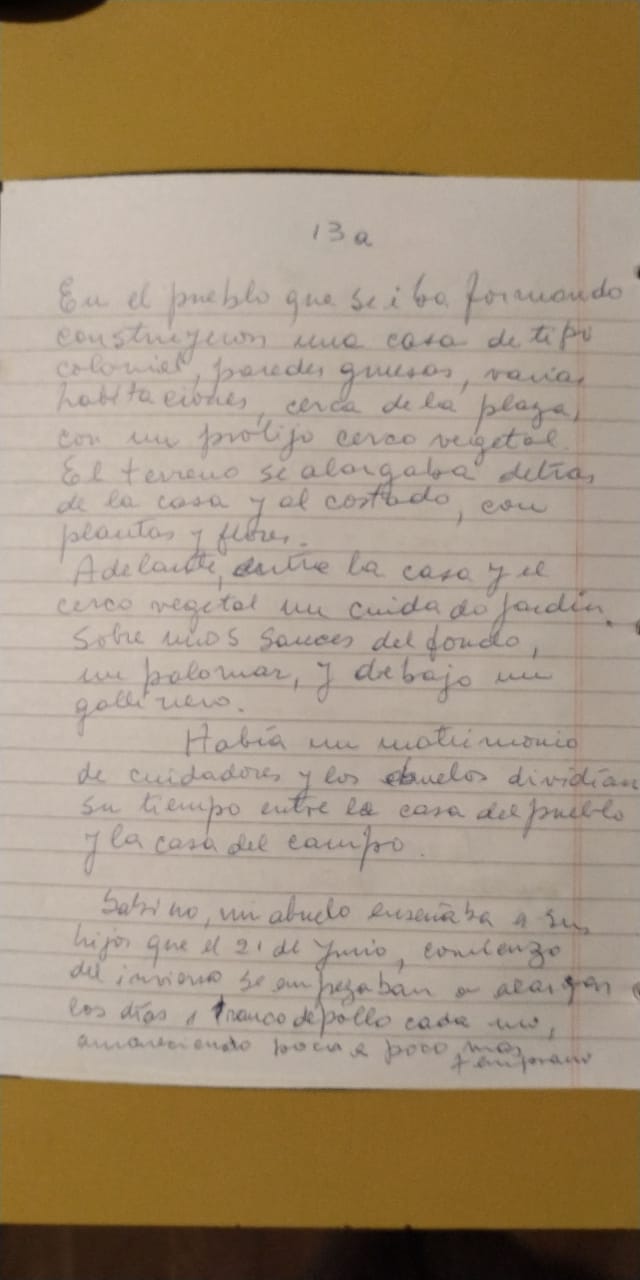 13a
En el pueblo que se iba formando
construyeron una casa de tipo
colonial, paredes gruesas, varias
habitaciones, cerca de la plaza,
con un prolijo cerco vegetal.
El terreno se alargaba detras
de la casa y al costado, con
plantas y flores.
Adelante, entre la casa y el
cerco vegetal un cuidado jardín.
Sobre unos sauces del fondo,
un palomar, y debajo un
gallinero.
Había un matrimonio
de cuidadores y los abuelos dividían
su tiempo entre la casa del pueblo
y la casa del campo.
Sabino, mi abuelo enseñaba a sus
hijos que el 21 de Junio, comienzo
del invierno se empezaban a alargar
los días 1 tranco de pollo cada uno,
amaneciendo poco a poco mas
temprano